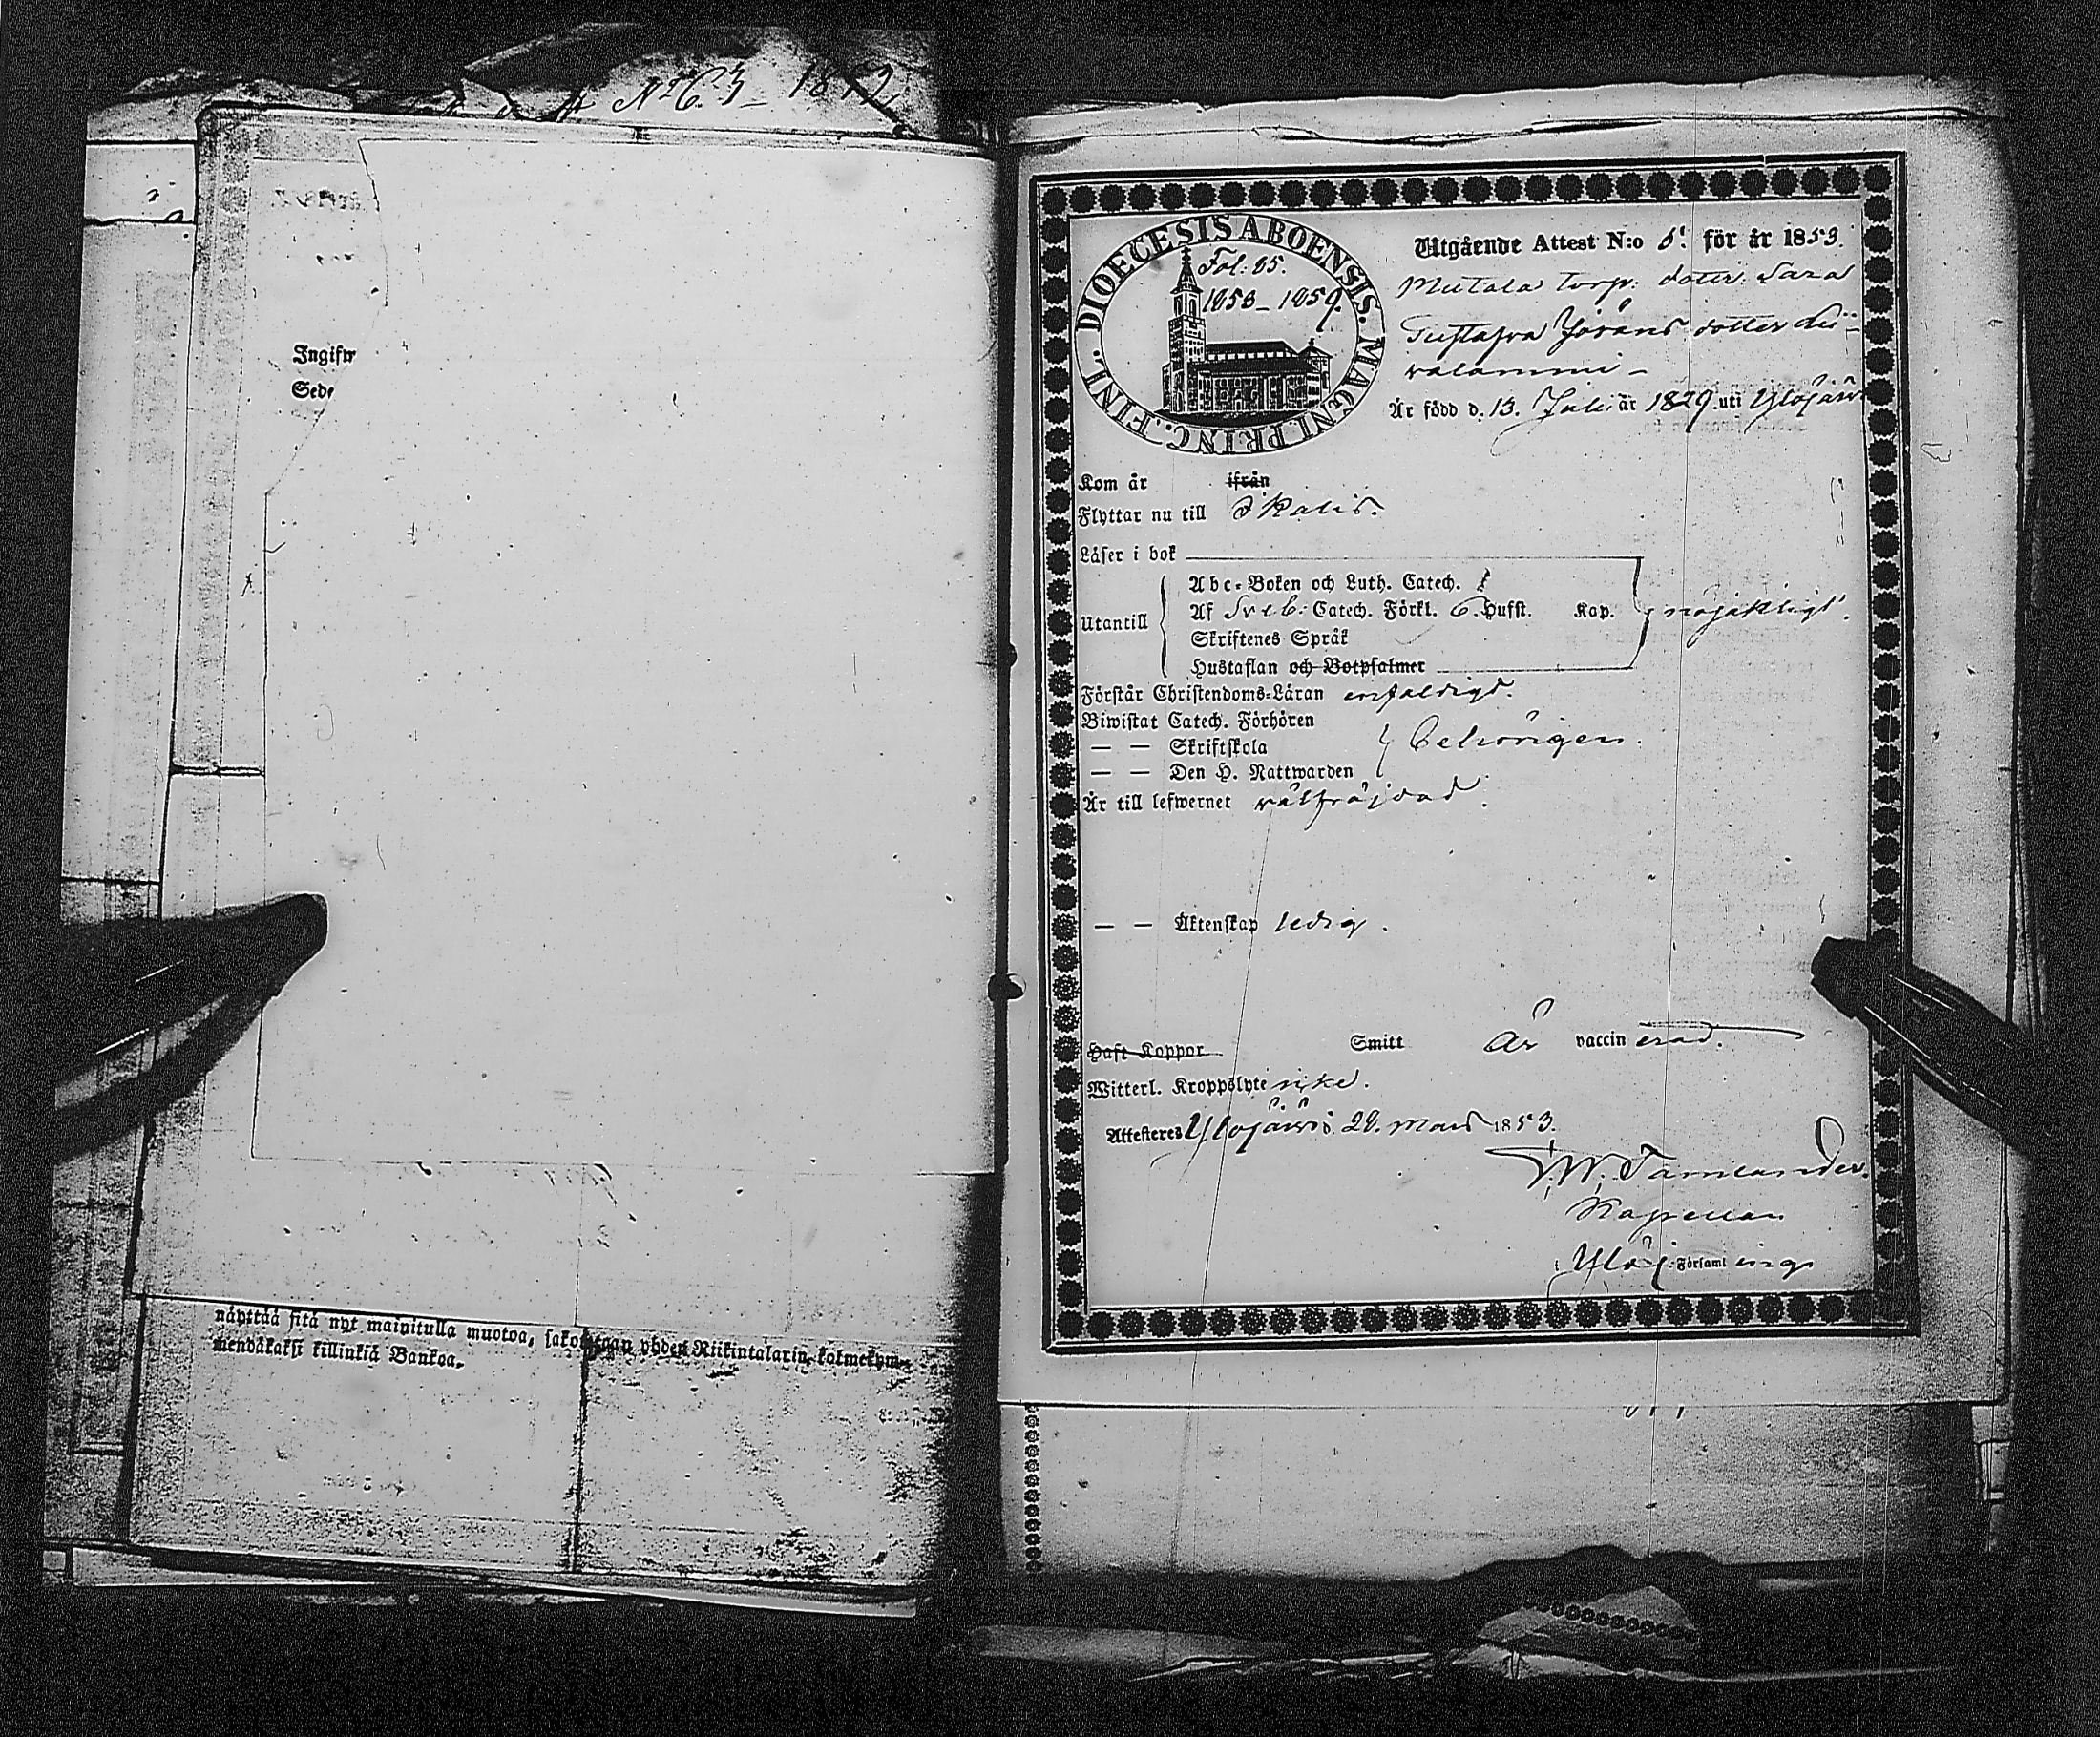 Ingifw
Sede
näyttää sitä nyt mainitulla muotoa, yhden Riikintalarin, kolmekym-
mendäkaksi killinkiä Bankoa.
DIOECESIS ABOENSIS. MAGNI PRINC. FINL.
Fol: 85.
1853–1859.
Utgående Attest N:o 5. för år 1853.
Mutala torp: dotter: Sara
Gustafva Jörans dotter
Är född d. 13. Juli år 1829. uti Ylöjärv
Kom år ifrån
Flyttar nu till Ikalis.
Läser i bok
Utantill
Abc-Boken och Luth. Catech.
Af Sveb: Catech. Förkl. 6. Hufst. Kap.
Skriftenes Språk
Hustaflan och Botpsalmer
nöjaktligt.
Förstår Christendoms-Läran enfaldigt.
Biwistat Catech. Förhören
— — Skriftskola
— — Den H. Nattwarden
behörigen.
Är till lefwernet välfräjdad.
— — Äktenskap ledig.
Haft Koppor Smitt Är vaccinerad.
Witterl. Kroppslyte icke.
Attesteras Ylöjärvi d. 29. Mars 1853.
Kapellan
Ylöj: Församling